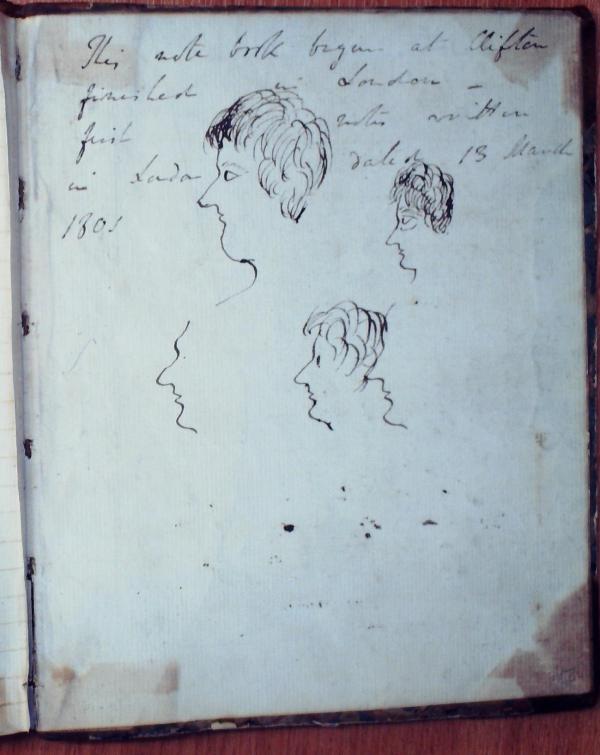 This note book began at Clifton
finished in London -
first notes written
in London dated 13 March
1801